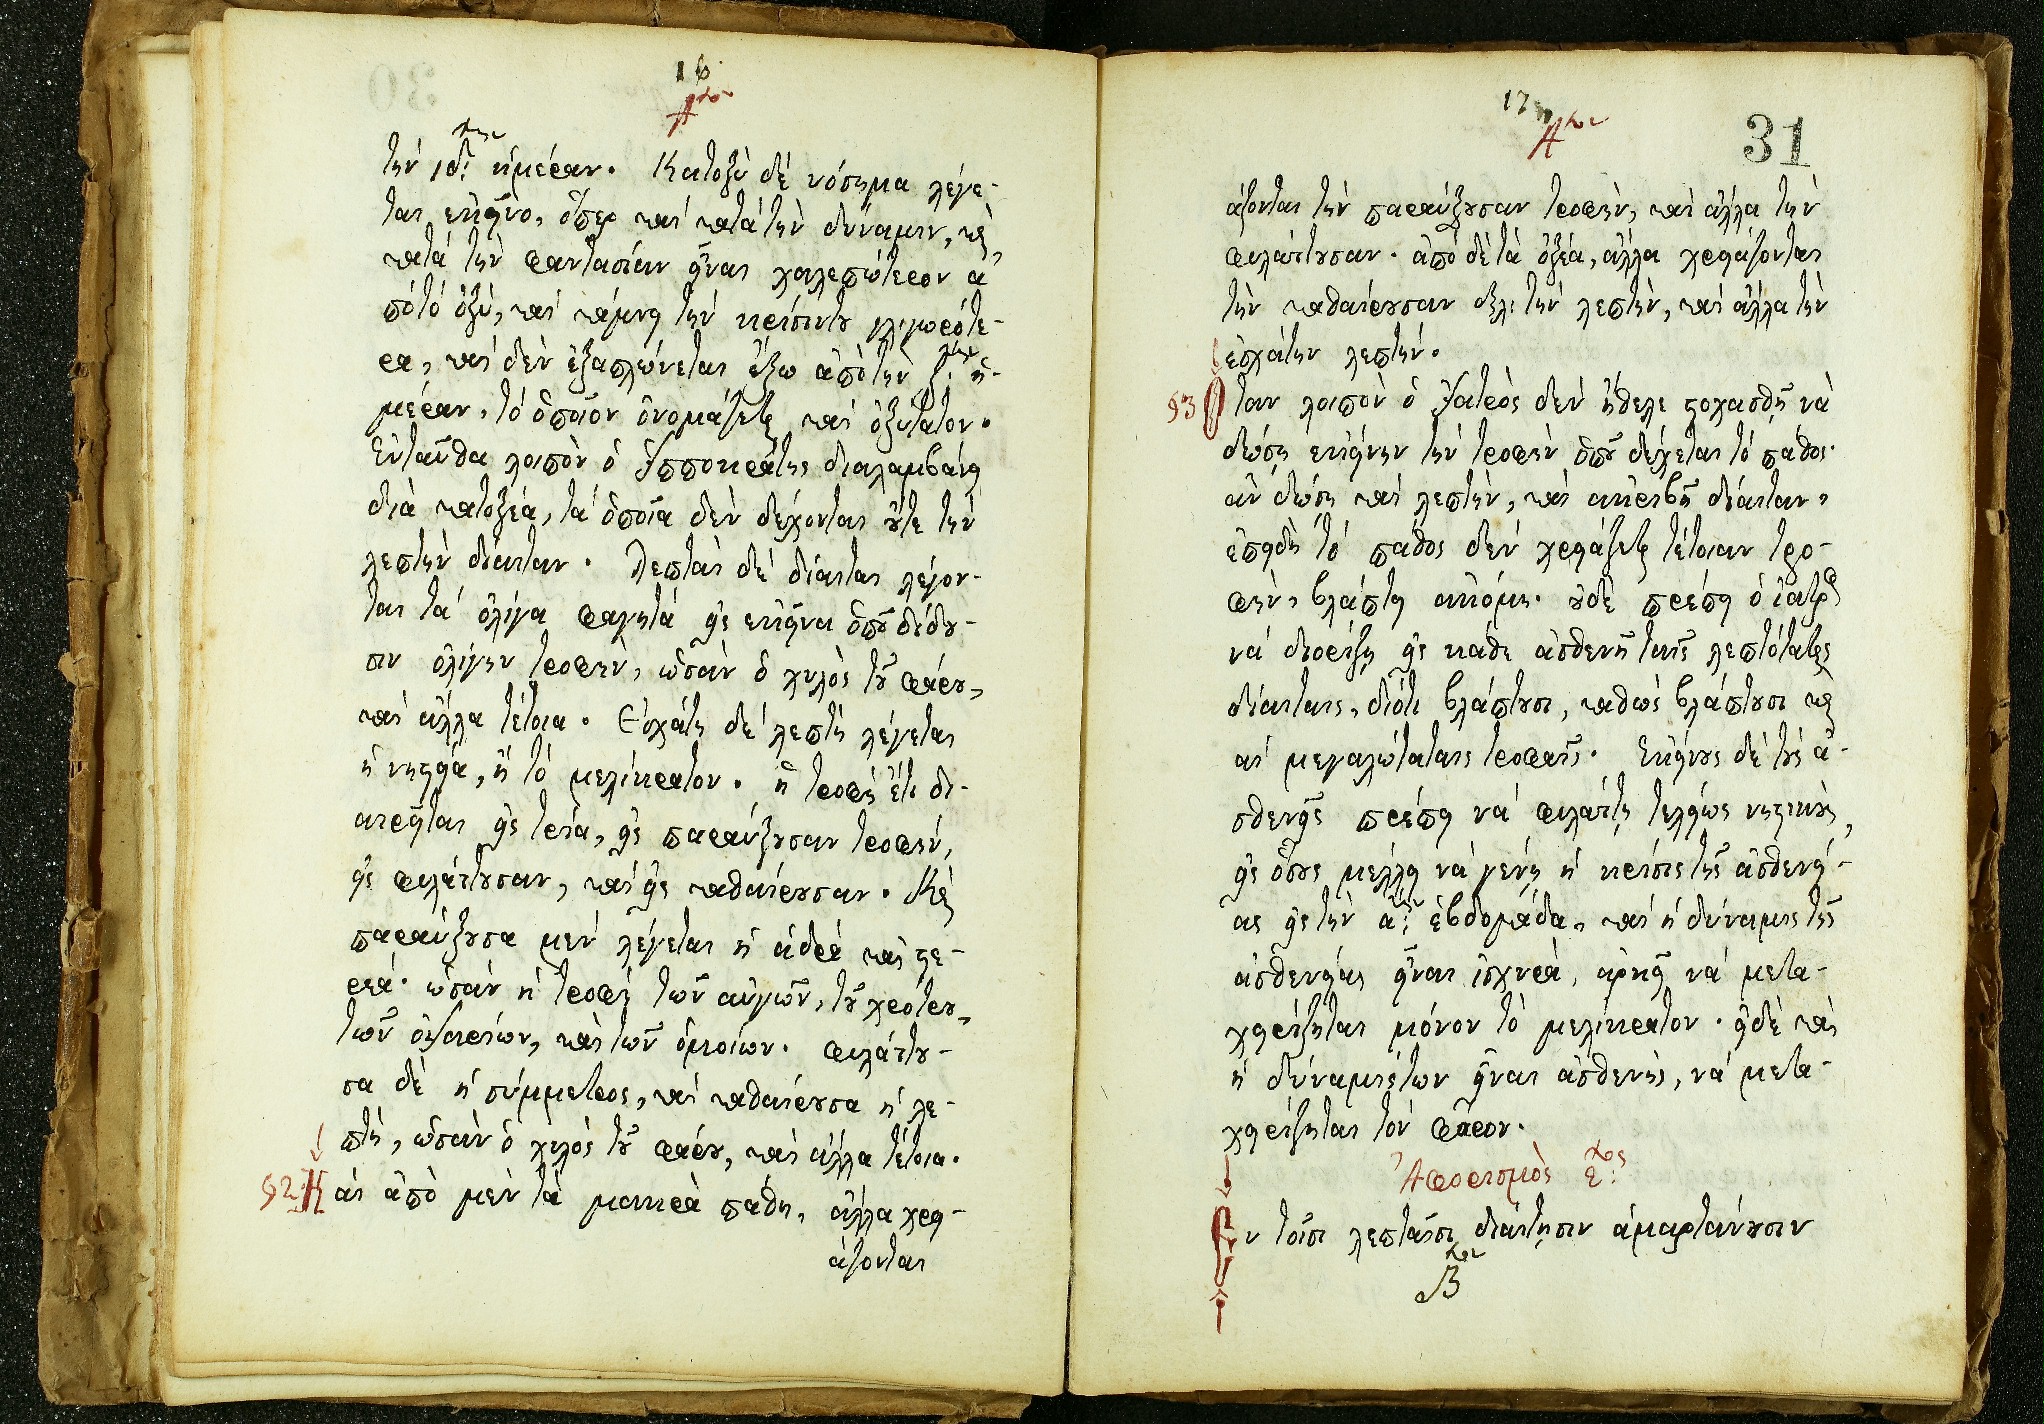 16
Α^(ον)
τὴν ιδ^(ην): ἡμέραν. Κατοξὺ δὲ νόσημα λέγε-
ται ἐκεῖνο, ὅπερ καὶ κατὰ τὴν δύναμιν, κὶ
κατὰ τὴν φαντασίαν εἶναι χαλεπώτερον ἀ-
πὸ τὸ ὀξύ, καὶ κάμνει τὴν κρίσιν του γλιγωρότε-
ρα, καὶ δὲν ἐξαπλώνεται ἔξω ἀπὸ τὴν ζ^(ην): ἡ-
μέραν, τὸ ὁποῖον ὀνομάζεται καὶ ὀξύτατον.
Ἐνταῦθα λοιπὸν ὁ Ἱπποκράτης διαλαμβάνει
διὰ κατοξέα, τὰ ὁποῖα δὲν δέχονται οὔτε τὴν
λεπτὴν δίαιταν. Λεπταὶ δὲ δίαιται λέγον-
ται τὰ ὀλίγα φαγητὰ εἰς ἐκεῖνα ὁποῦ δίδου-
σιν ὀλίγην τροφήν, ὡσὰν ὁ χυλὸς τοῦ φάρου,
καὶ ἄλλα τέτοια. Ἐσχάτη δὲ λεπτὴ λέγεται
ἡ νηστεία, ἢ τὸ μελίκρατον. ἡ τροφὴ ἔτι δι-
αιρεῖται εἰς τρία, εἰς παραύξουσαν τροφήν,
εἰς φυλάττουσαν, καὶ εἰς καθαίρουσαν. Κὶ
παραύξουσα μὲν λέγεται ἡ ἁδρὰ καὶ στε-
ρεά. ὡσὰν ἡ τροφὴ τῶν αὐγῶν, τοῦ χρότου,
τῶν ὀψαρίων, καὶ τῶν ὁμοίων. φυλάττου-
σα δὲ ἡ σύμμετρος, καὶ καθαίρουσα ἡ λε-
πτή, ὡσὰν ὁ χυλὸς τοῦ φάρου, καὶ ἄλλα τέτοια.
52 Καὶ ἀπὸ μὲν τὰ μακρὰ πάθη, ἄλλα χρει-
άζονται
17
Α^(ον)
31
άζονται τὴν παραύξουσαν τροφήν, καὶ ἄλλα τὴν
φυλάττουσαν. ἀπὸ δὲ τὰ ὀξέα, ἄλλα χρειάζονται
τὴν καθαίρουσαν δηλ: τὴν λεπτήν, καὶ ἄλλα τὴν
ἐσχάτην λεπτήν.
53 Ὅταν λοιπὸν ὁ Ἰατρὸς δὲν ἤθελε στοχασθῇ νὰ
δώσῃ ἐκείνην τὴν τροφὴν ὁποῦ δέχεται τὸ πάθος.
ἂν δώσῃ καὶ λεπτήν, καὶ ἀκριβῆ δίαιταν,
ἐπειδὴ τὸ πάθος δὲν χρειάζεται τέτοιαν τρο-
φήν, βλάπτει ἀκόμη. οὐδὲ πρέπει ὁ ἰατρὸς
νὰ διορίζῃ εἰς κάθε ἀσθενῆ ταῖς λεπτόταταις
δίαιταις, διότι βλάπτουσι, καθὼς βλάπτουσι κὶ
αἱ μεγαλώταταις τροφαῖς. Ἐκείνους δὲ τοὺς ἀ-
σθενεῖς πρέπει νὰ φυλάττῃ τελείως νηστικούς,
εἰς ὅσους μέλλει νὰ γένῃ ἡ κρίσις τῆς ἀσθενεί-
ας εἰς τὴν α^(ην): ἑβδομάδα, καὶ ἡ δύναμις τῆς
ἀσθενείας εἶναι ἰσχυρά, ἀρκεῖ νὰ μετα-
χειρίζηται μόνον τὸ μελίκρατον. εἰδὲ καὶ
ἡ δύναμίς των εἶναι ἀσθενής, νὰ μετα-
χειρίζηται τὸν φάρον.
Ἀφορισμὸς ε^(ος):
Ἐν τοῖσι λεπταῖσι διαίτῃσιν ἁμαρτάνουσιν
Β^(ον)